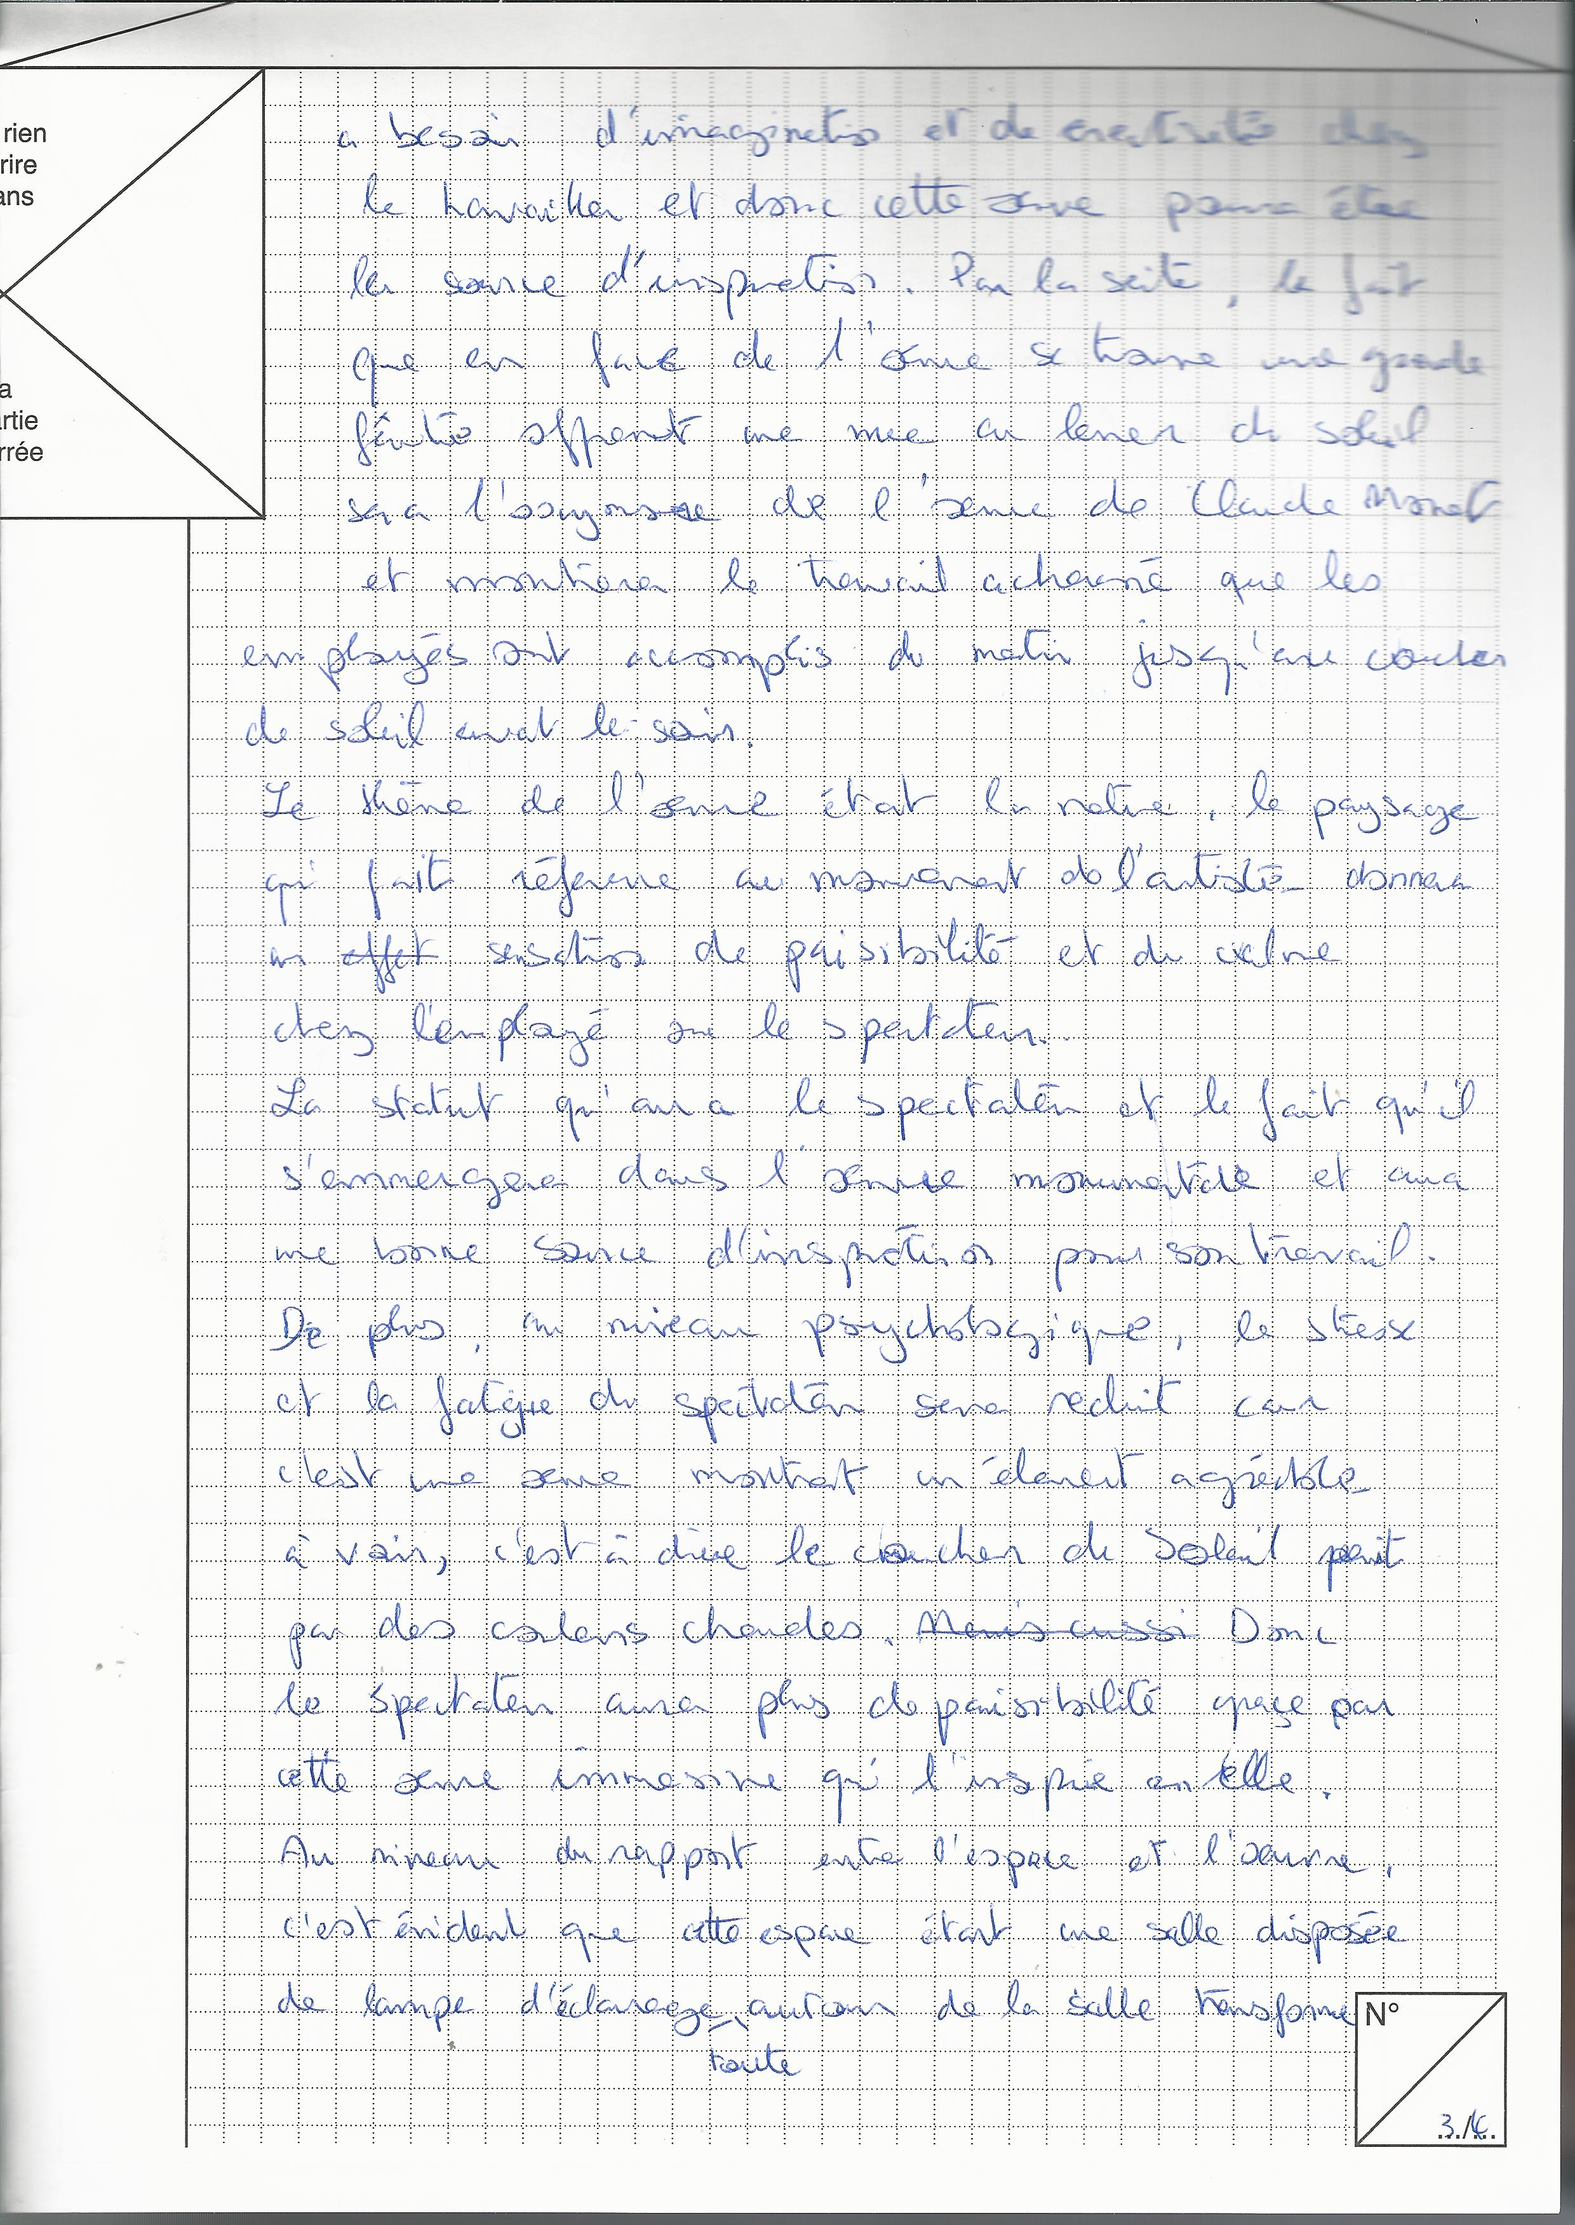 rien
rire
ans
a
rtie
rrée
a besoin d'imagination et de créativité chez
le travailler et donc cette œuvre pourra être
la source d'inspiration. Par la suite, le fait
que en face de l'œuvre se trouve une grande
fênêtre offrant une vue au lever du soleil
sera l'opposé de l'œuvre de Claude Monet
et montrera le travail acharné que les
employés ont accomplis du matin jusqu'au coucher
de soleil avant le soir.
Le thème de l'œuvre étant la nature, le paysage
qui fait référence au mouvement de l'artiste donnera
un effet sensation de paisibilité et du calme
chez l'employé ou le spectateur.
La statut qu'aura le spectateur et le fait qu'il
s'emmergera dans l'œuvre monumentale et aura
une bonne source d'inspiration pour son travail.
De plus, au niveau psychologique, le stress
et la fatigue du spectateur sera réduit car
c'est une œuvre montrant un élément agréable
à voir, c'est à dire le coucher de Soleil peint
par des couleurs chaudes. Mais aussi Donc
le spectateur aura plus de paisibilité grace par
cette œuvre immersive qui l'inspire en elle.
Au niveau du rapport entre l'espace et l'œuvre,
c'est évident que cette espace étant une salle disposée
de lampe d'éclairage autour de la salle transforme
toute
N°
3./4.